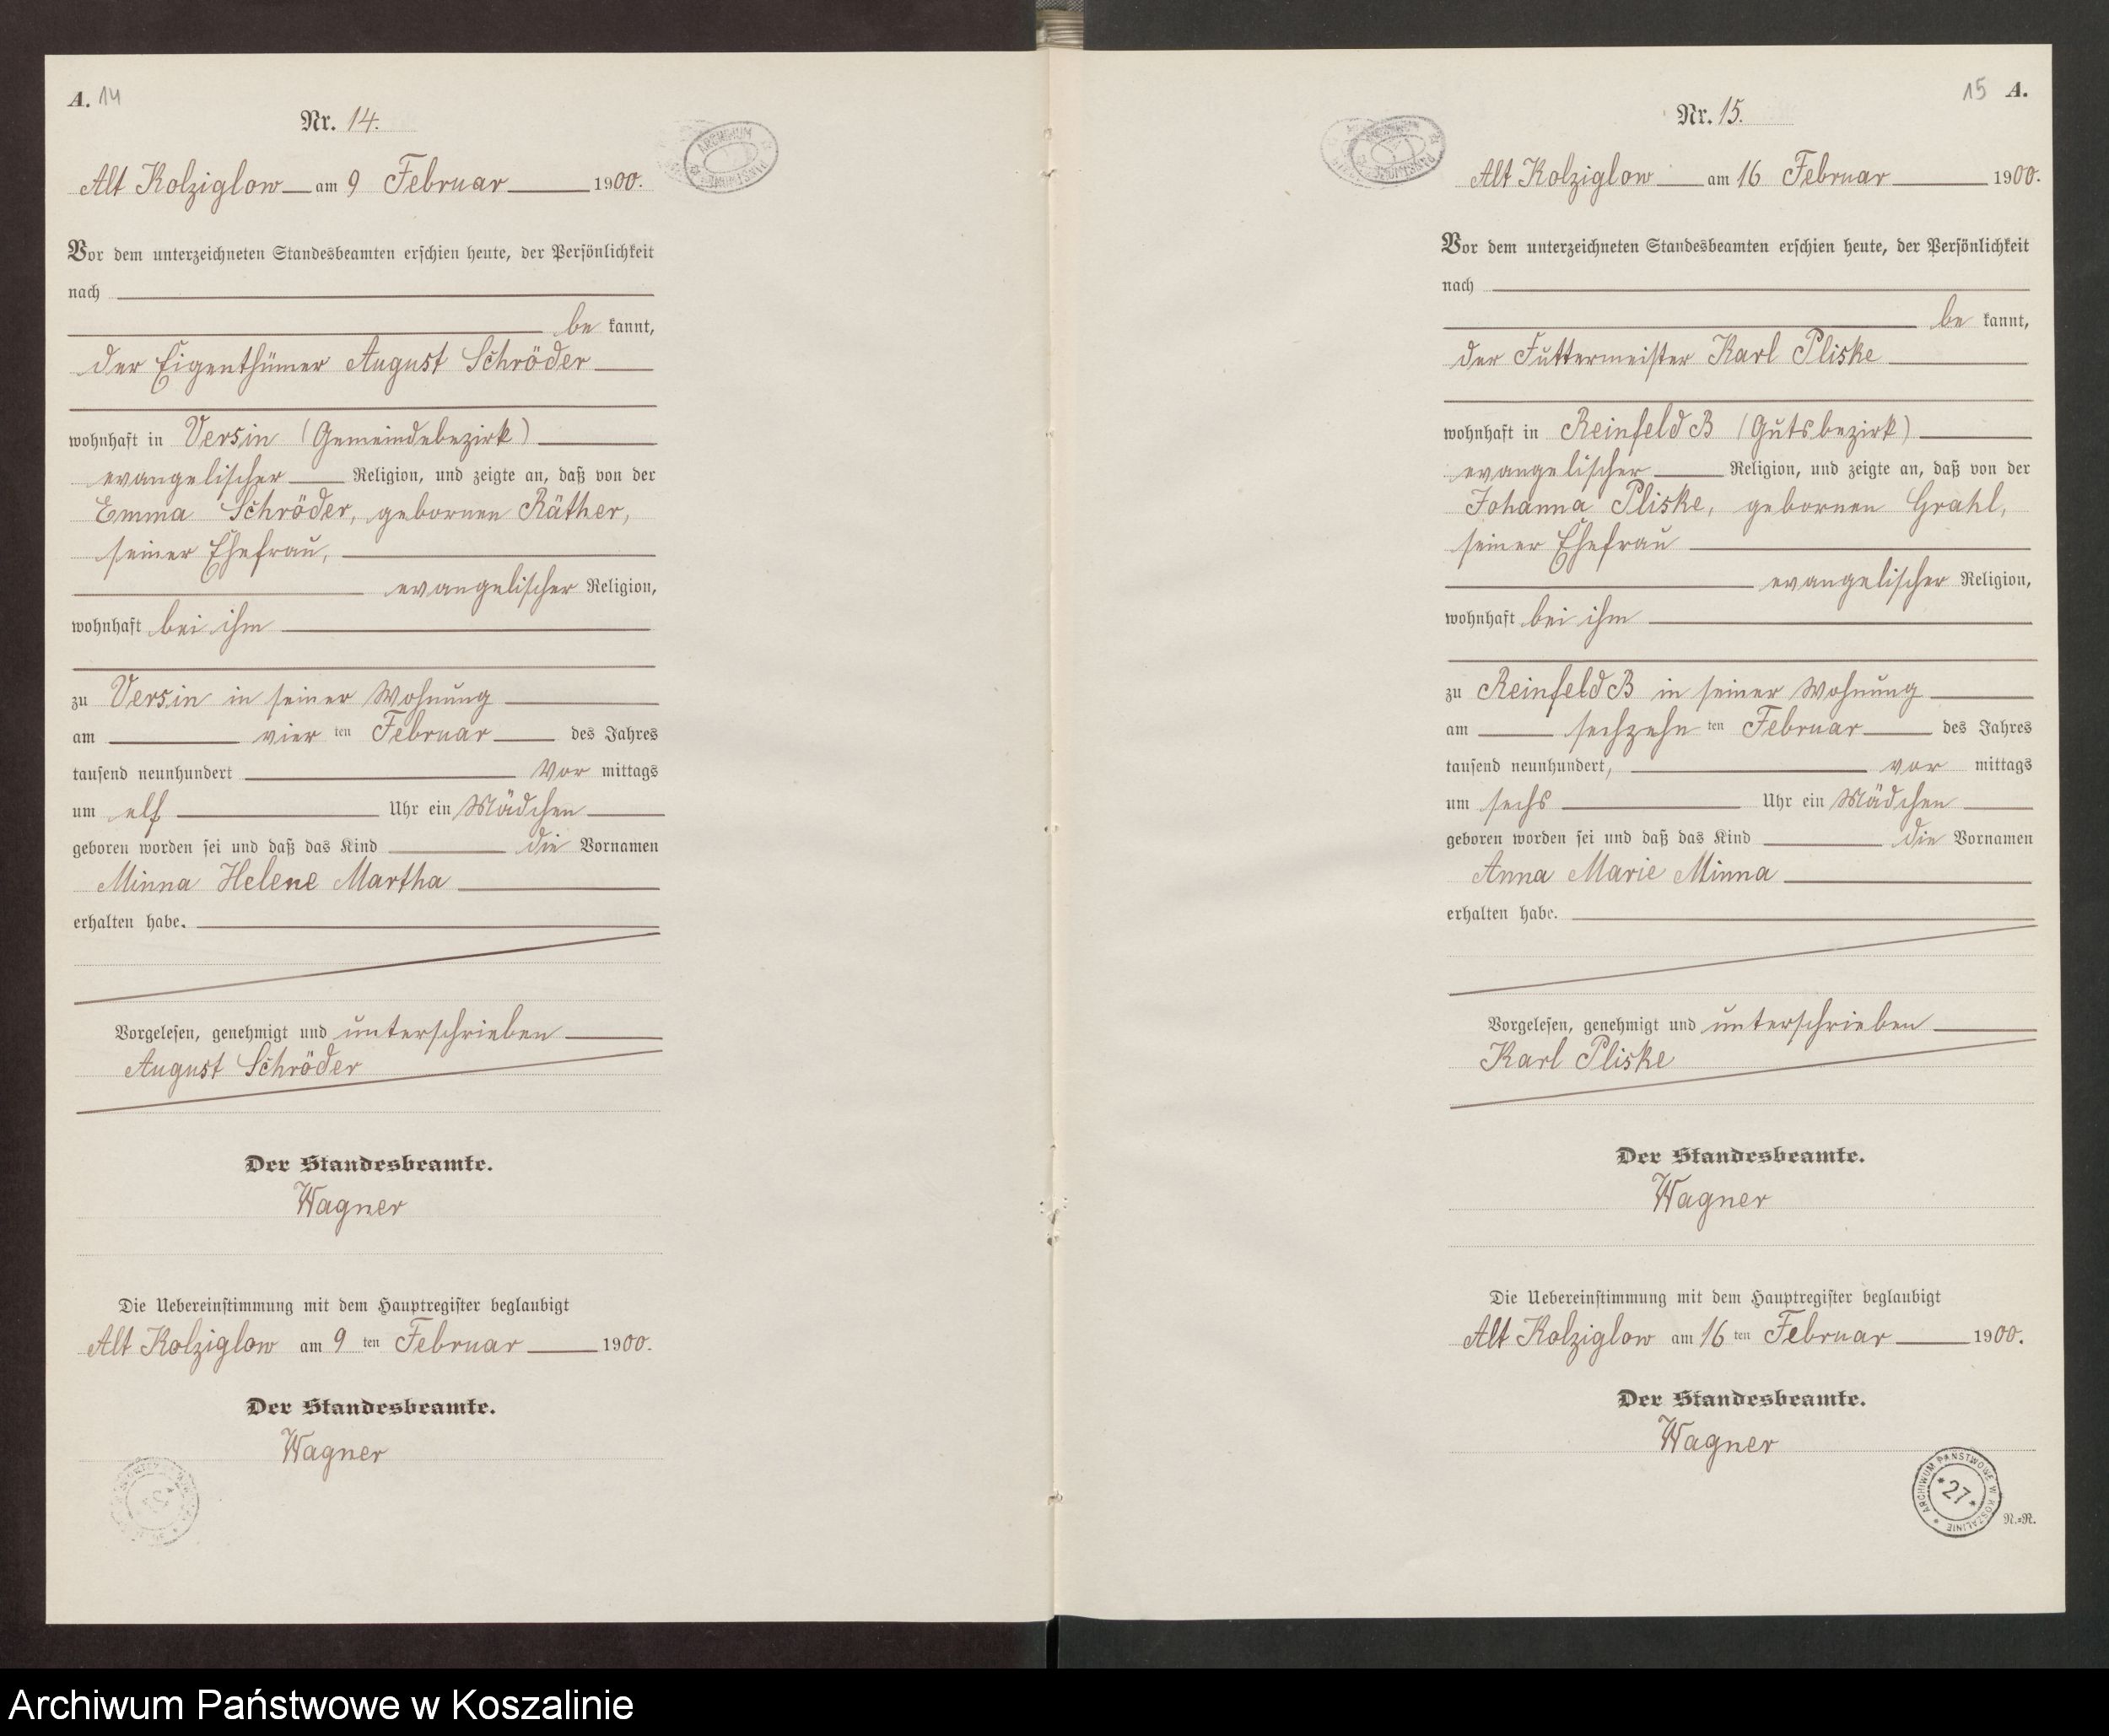 A. 14
Nr. 14.
Alt Kolziglow am 9 Februar 1900.
Vor dem unterzeichneten Standesbeamten erschien heute, der Persönlichkeit
nach
be kannt,
der Eigenthümer August Schröder
wohnhaft in Versin (Gemeindebezirk)
evangelischer Religion, und zeigte an, daß von der
Emma Schröder, gebornen Räther,
seiner Ehefrau,
evangelischer Religion,
wohnhaft bei ihm
zu Versin in seiner Wohnung
am vier ten Februar des Jahres
tausend neunhundert Vor mittags
um elf Uhr ein Mädchen
geboren worden sei und daß das Kind die Vornamen
Minna Helene Martha
erhalten habe.
Vorgelesen, genehmigt und unterschrieben
August Schröder
Der Standesbeamte.
Wagner
Die Uebereinstimmung mit dem Hauptregister beglaubigt
Alt Kolziglow am 9 ten Februar 1900.
Der Standesbeamte.
Wagner
ARCHIWUM
15 A.
Nr. 15.
Alt Kolziglow am 16 Februar 1900.
Vor dem unterzeichneten Standesbeamten erschien heute, der Persönlichkeit
nach
be kannt,
der Futtermeister Karl Pliske
wohnhaft in Reinfeld B (Gutsbezirk)
evangelischer Religion, und zeigte an, daß von der
Johanna Pliske, gebornen Grahl,
seiner Ehefrau
evangelischer Religion,
wohnhaft bei ihm
zu Reinfeld B in seiner Wohnung
am sechzehn ten Februar des Jahres
tausend neunhundert, vor mittags
um sechs Uhr ein Mädchen
geboren worden sei und daß das Kind die Vornamen
Anna Marie Minna
erhalten habe.
Vorgelesen, genehmigt und unterschrieben
Karl Pliske
Der Standesbeamte.
Wagner
Die Uebereinstimmung mit dem Hauptregister beglaubigt
Alt Kolziglow am 16 ten Februar 1900.
Der Standesbeamte.
Wagner
ARCHIWUM PAŃSTWOWE W KOSZALINIE
* 27 *
N.=R.
Archiwum Państwowe w Koszalinie